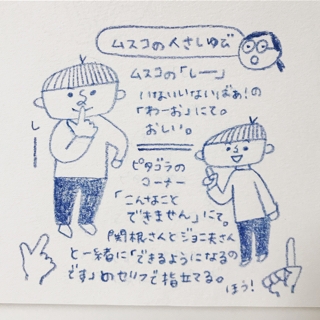 ムスコの人さしゆび
ムスコの「しー」
いないいないばぁ!の
「わーお」にて。
おしい。
し
ピタゴラの
コーナー
「こんなこと
できません」にて。
関根さんとジョニ夫さん
と一緒に「できるようになるの
です」のセリフで指立てる。
ほう!